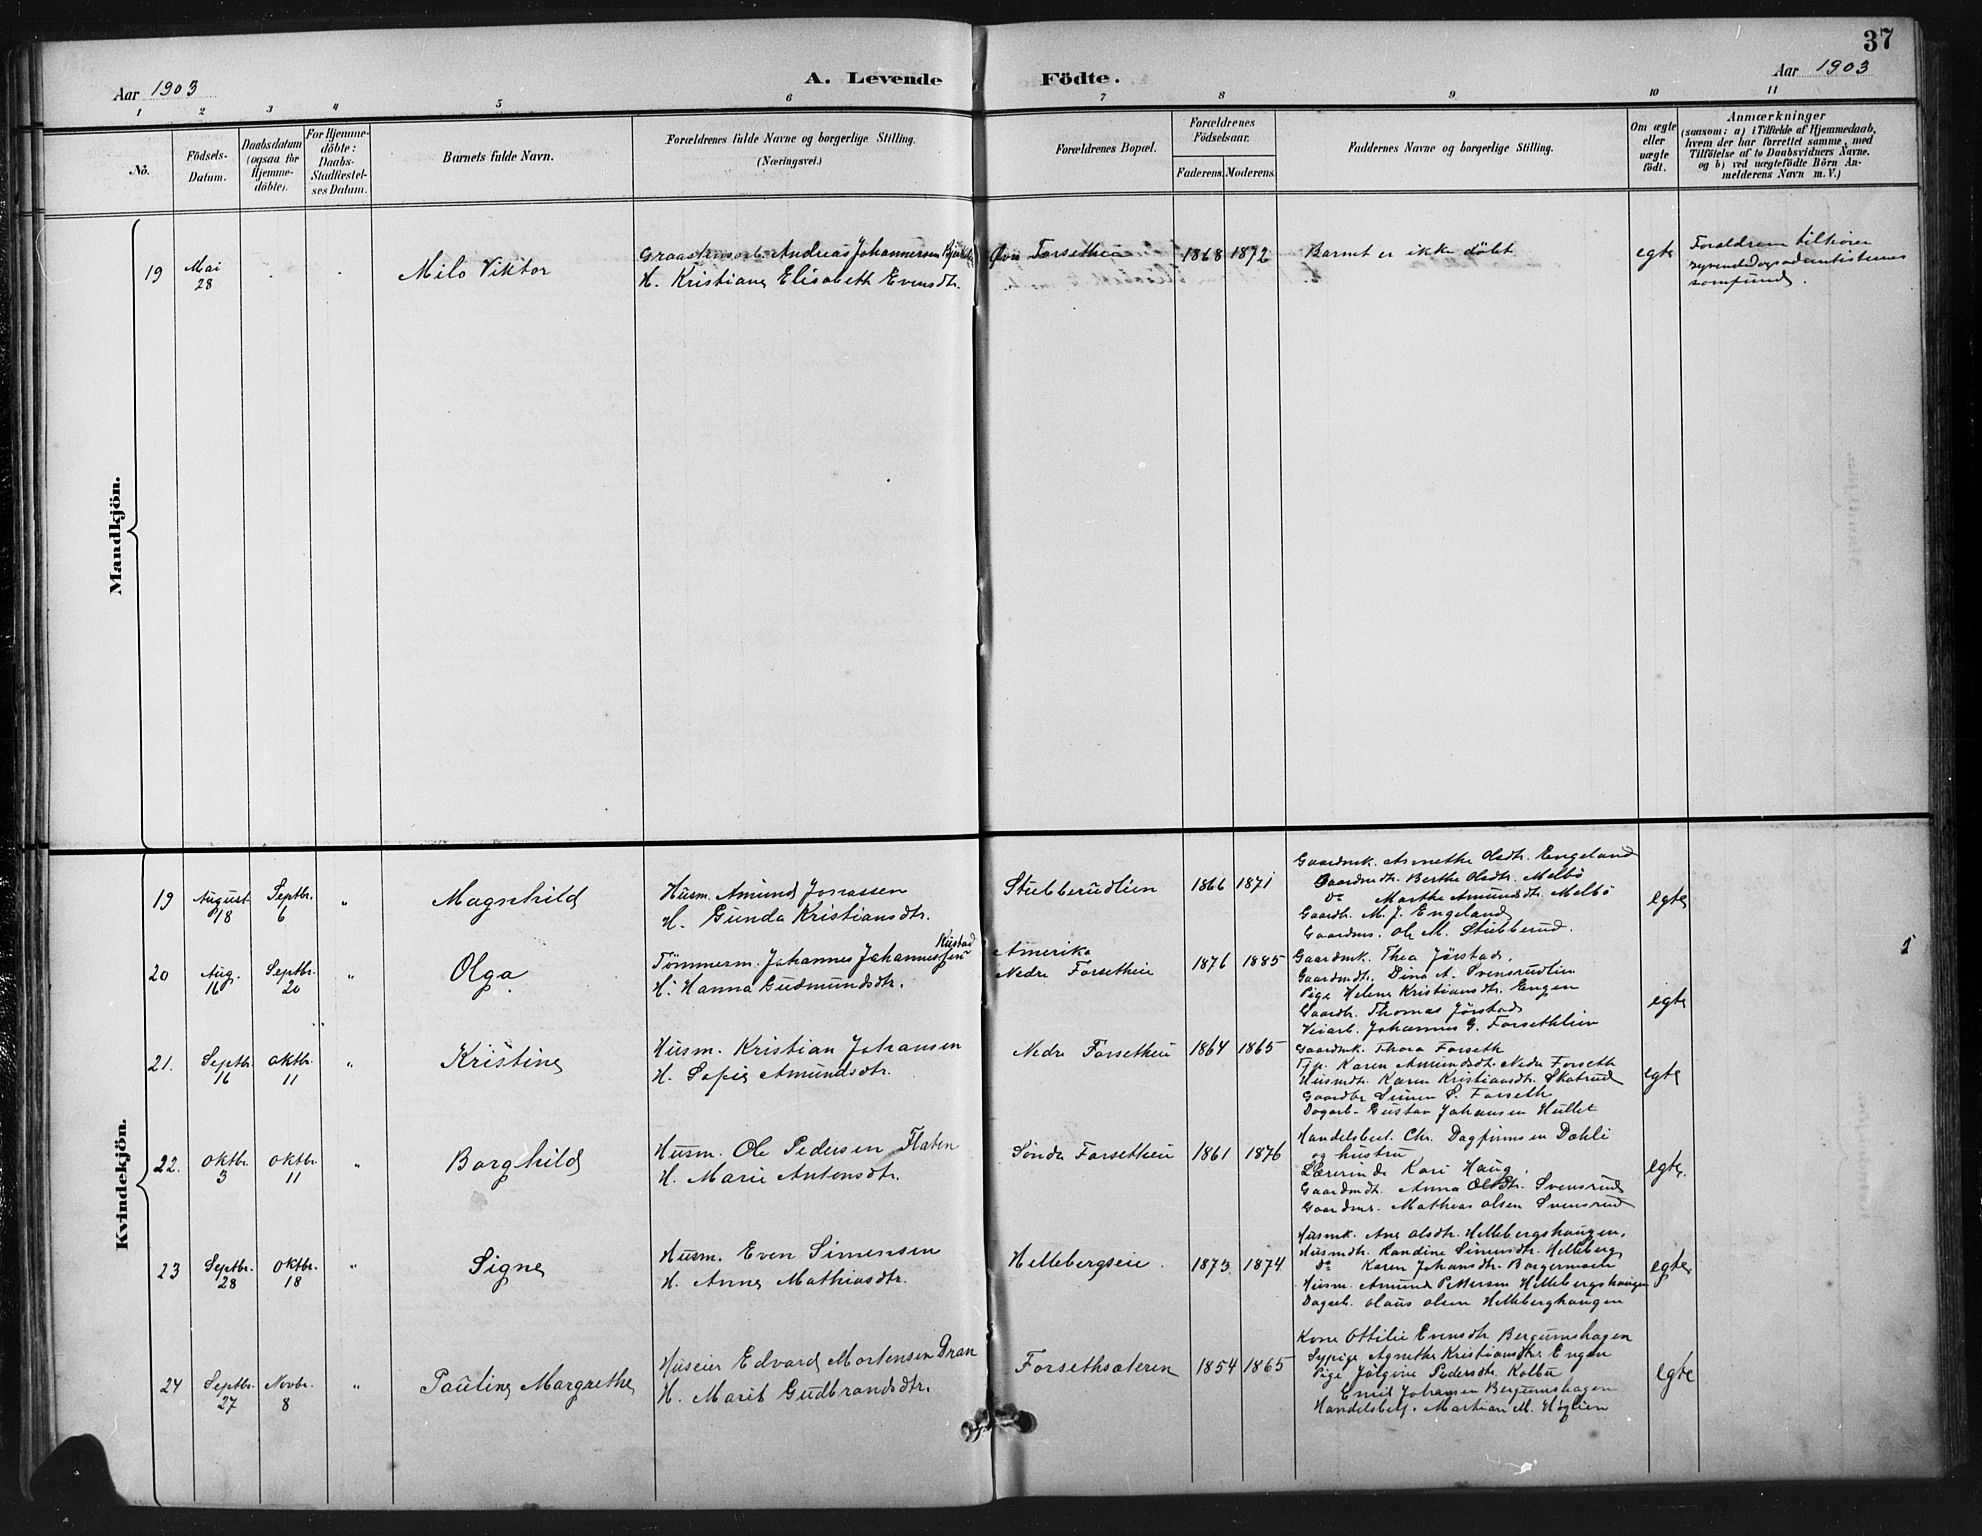 37
Aar 1903
A. Levende Födte.
Aar 1903
1 2 3 4 5 6 7 8 9 10 11
No.
Födsels-Datum.
Daabsdatum (ogsaa for Hjemmedöbte).
For Hjemmedöbte: Daabs-Stadfæstelses Datum.
Barnets fulde Navn.
Forældrenes fulde Navne og borgerlige Stilling. (Næringsvei.)
Forældrenes Bopæl.
Forældrenes Födselsaar.
Faderens. Moderens.
Faddernes Navne og borgerlige Stilling.
Om ægte eller uægte födt.
Anmærkninger
(saasom: a) i Tilfælde af Hjemmedaab, hvem der har forrettet samme, med Tilföielse af to Daabsvidners Navne. og b) ved uægtefödte Börn Anmelderens Navn m. V.)
Mandkjön.
19 Mai 28 Milo Viktor
Andreas Johannersen
H. Kristiane Elisabeth Evensdtr.
Övre Forsetheie 1868 1872
Barnet er ikke döbt
egte
Forældrene tilhører
syvendedagsadventisternes
samfund.
Kvindekjön.
19 August 18 Septbr. 6 " Magnhild
Husm. Amund Jonassen
H. Gunda Kristiansdtr.
Stubberudlien 1866 1871
Gaardmk. Annethe Olsdtr. Engeland
Gaardmdtr. Berthe Olsdtr. Melbö
Do Marthe Amundsdtr. Melbö
Gaardbr. M. J. Engeland
Gaardms. Ole M. Stubberud.
egte
20 Aug. 16 Septbr. 20 " Olga
Tömmerm. Johannes Johannessen
H. Hanna Gudmundsdtr.
Amerika
Nedre Forsetheie 1876 1885
Gaardmk. Thea Jörstad.
Gaardmdtr. Dina A. Svensrudlien
Pige Helene Kristiansdtr. Engen
Gaardbr. Thomas Jörstad
Veiarb. Johannes G. Forsethlien
egte
21. Septbr. 16 Oktbr. 11 " Kristine
Husm. Kristian Johansen
H. Sofie Amundsdtr.
Nedre Forsetheie 1864 1865
Gaardmk. Thora Forseth
Tjp. Karen Amundsdtr. Nedre Forseth
Husmdtr. Karen Kristiansdtr. Skatrud
Gaardbr Simen S. Forseth
Dagarb. Gustav Johansen Hullet
egte
22. Oktbr. 3 Oktbr. 11 " Borghild
Husm. Ole Pedersen Flaten
H. Marie Antonsdtr.
Söndre Forsetheie 1861 1876
Handelsbest. Chr. Dagfinnsen Dahle
og hustru
Lærerinde Kari Haug.
Gaardmdtr. Anna Olsdtr. Svensrud
Gaardms. Mathias Olsen Svensrud
egte.
23 Septbr. 28 Oktbr. 18 " Signe
Husm. Even Simensen
H. Anne Mathiasdtr.
Hellebergseie. 1873. 1874
Husmk. Ane Olsdtr. Hellebergshaugen.
Husmdtr. Randine Simensdtr. Helleberg
Do Karen Johansdtr. Borgermoen
Husm. Amund Pettersen Hellebergshaugen
Dagarb. Olaus Olsen Helleberghaugen
egte
24 Septbr. 27 Novbr. 8 " Pauline Margrethe
Huseier Edvard Mortensen Bran
H. Marit Gudbrandsdtr.
Forsethsæteren 1854 1865
Kone Ottilie Evensdtr Bergumshagen
Sypige Agnethe Kristiansdtr Engen
Pige Jölgine Pedersdtr Kolbu
Emil Johansen Bergumshagen
Handelsbetj. Martian M. Høglien
egte